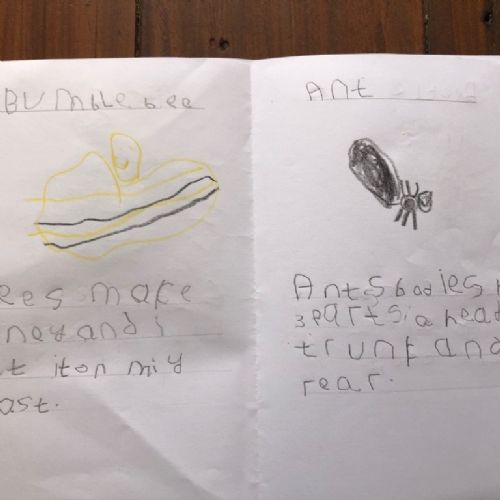 BUmble bee
ees make
ney and i
t it on my
ast.
Ant
Ants bodies h
3 parts: a head
trunk and
rear.